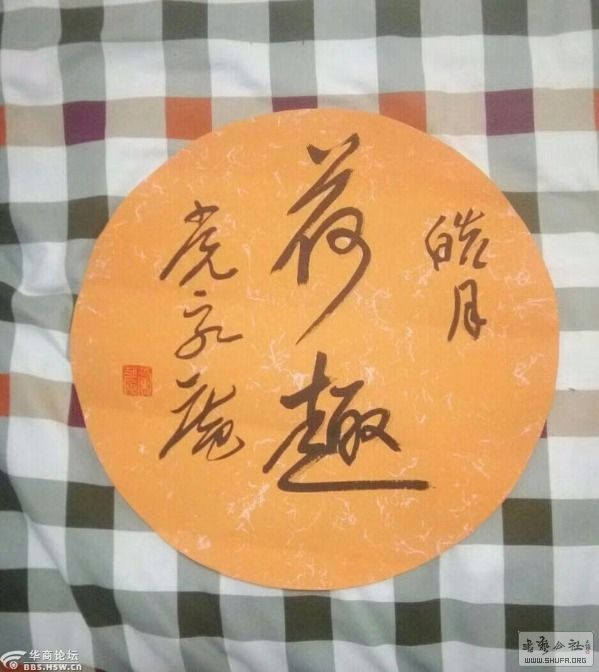 皓月
荷趣
党永庵
华商论坛
BBS.HSW.CN
书艺公社
WWW.SHUFA.ORG